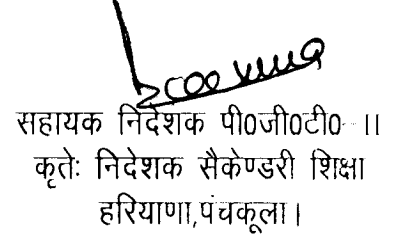 सहायक निदेशक पी0जी0टी0 ।।
कृतेः निदेशक सैकेण्डरी शिक्षा
हरियाणा,पंचकूला।